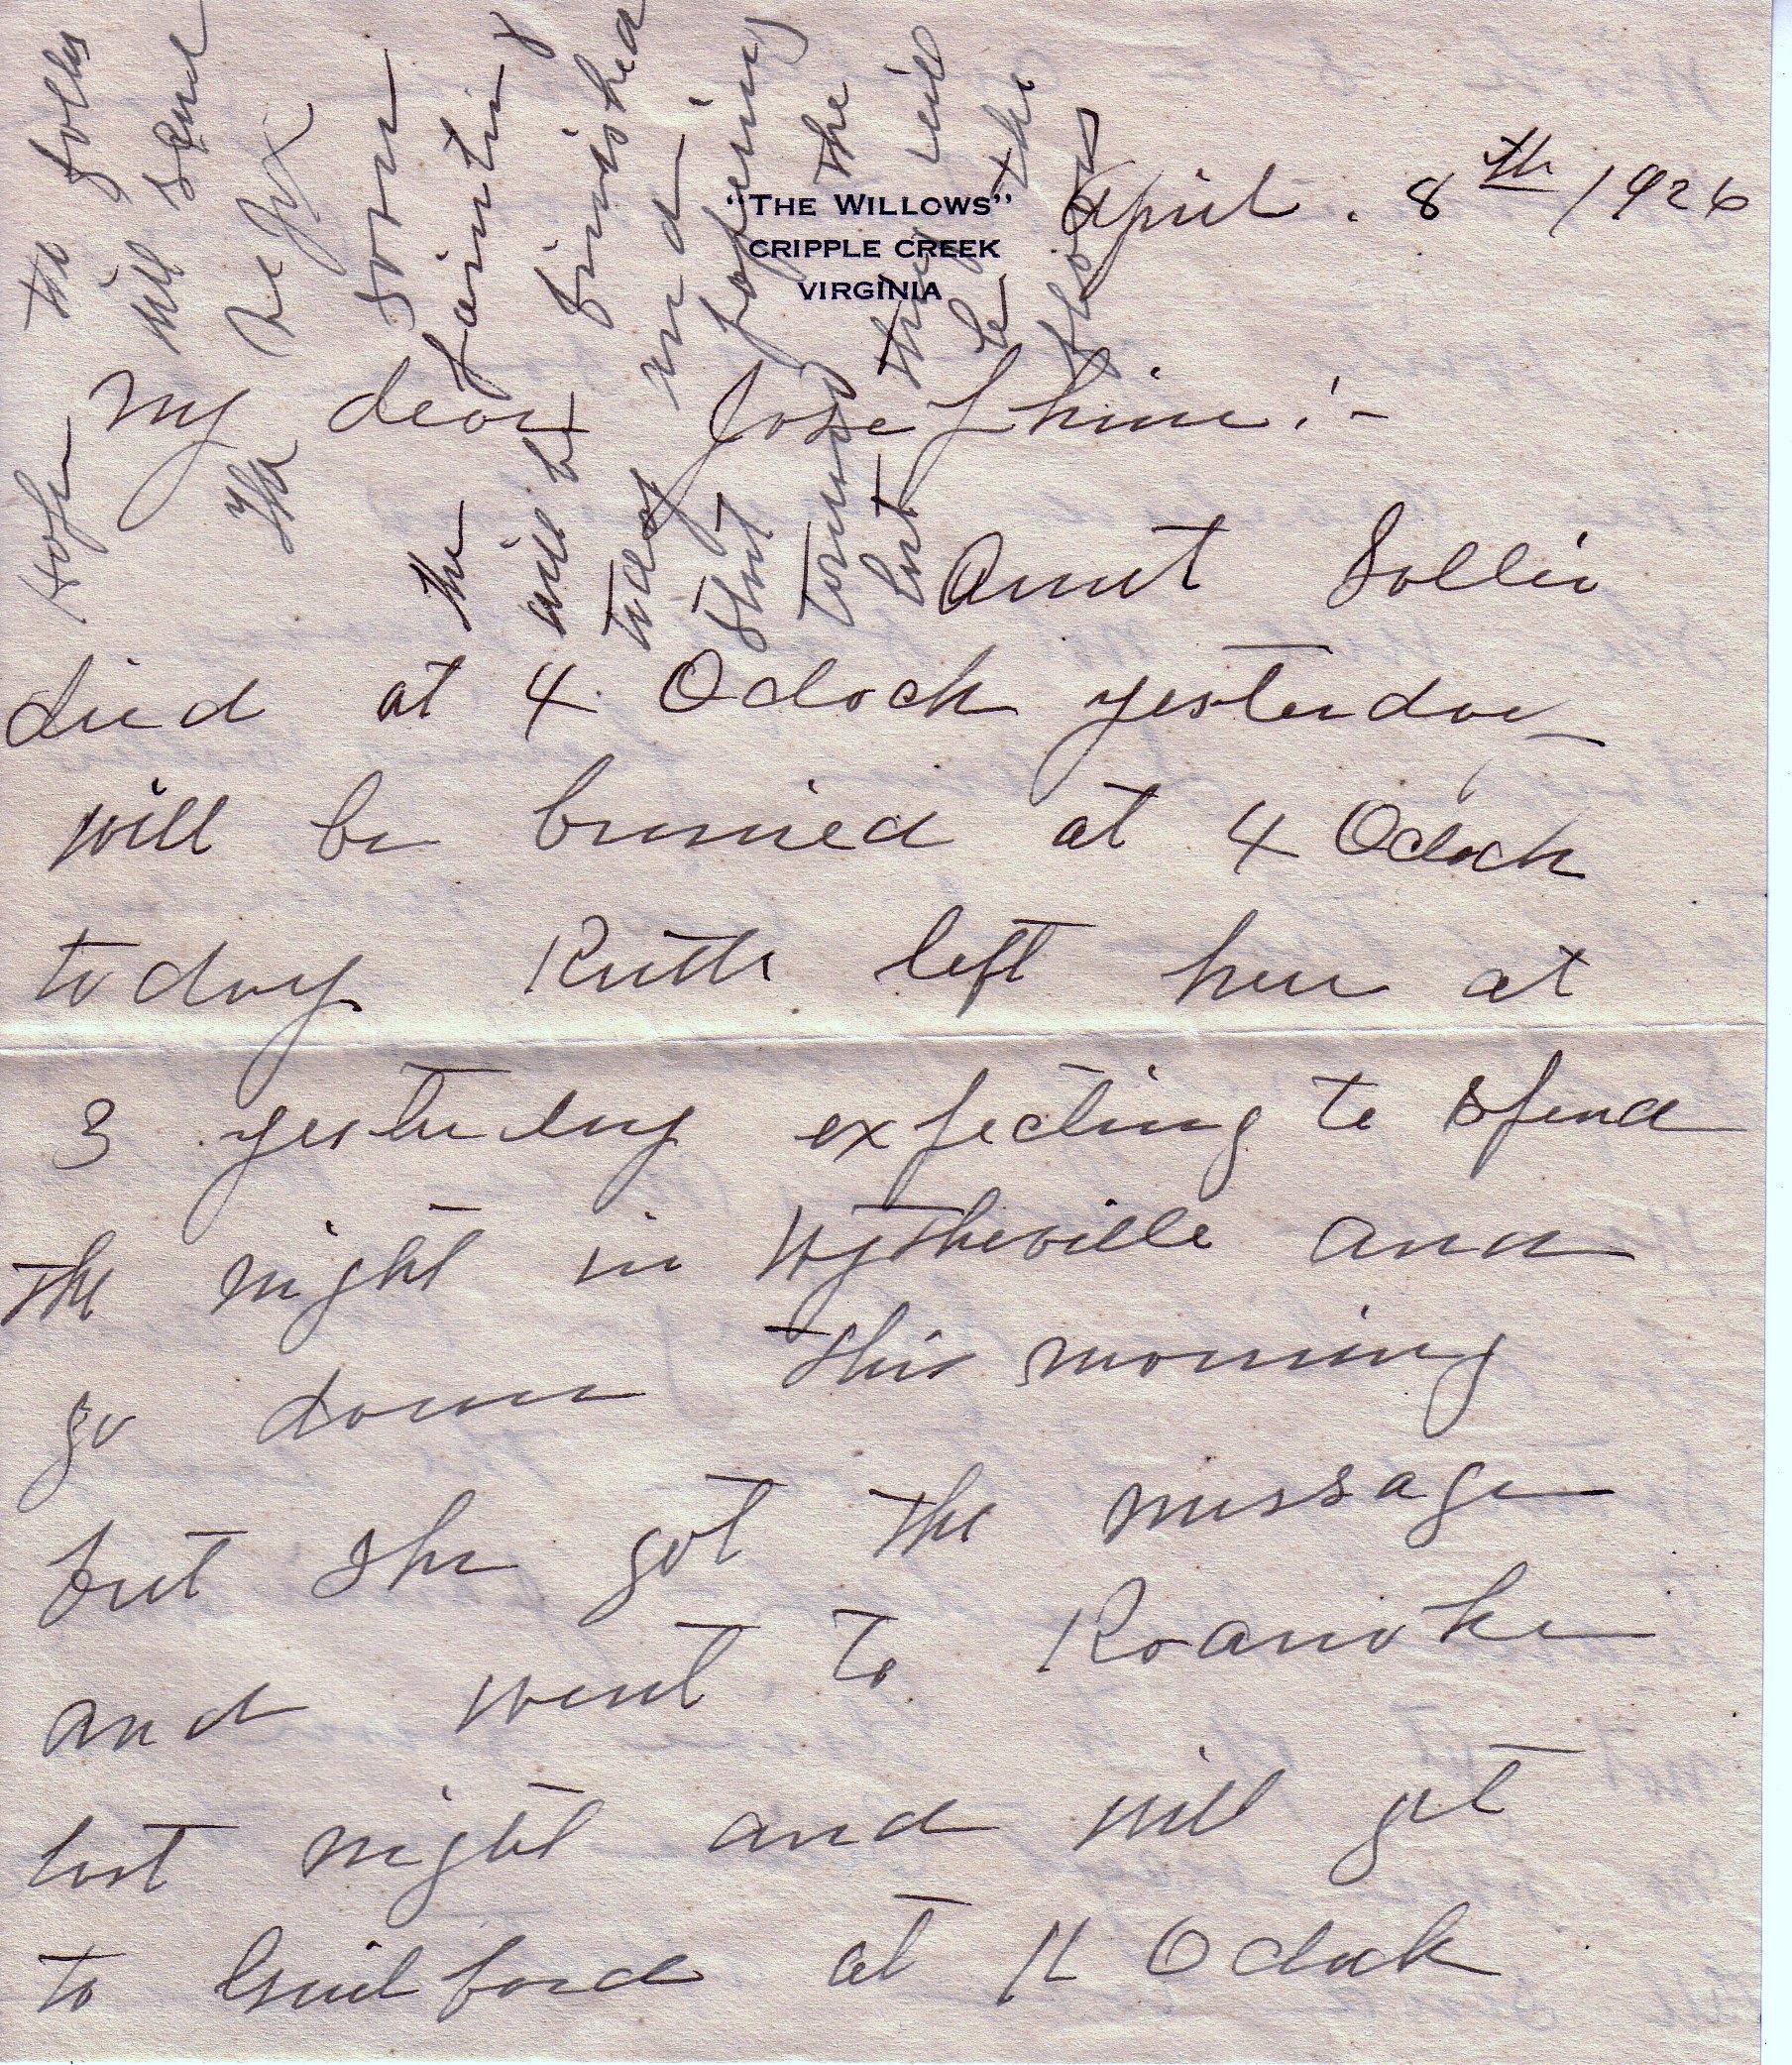 "THE WILLOWS"
CRIPPLE CREEK
VIRGINIA
April. 8th 1926
My dear Josephine:-
Aunt Sollie
died at 4 Oclock yesterday
will be burried at 4 Oclock
today Ruth left here at
3 yesterday expecting to spend
the night in Wytheville and
go down this morning
but she got the message
and went to Roanoke
last night and will get
to Guilford at 11 Oclock
Hope the folks
will send
the
soon
The painting
will be finished
today and
papering
the
last thing will
be the
floors